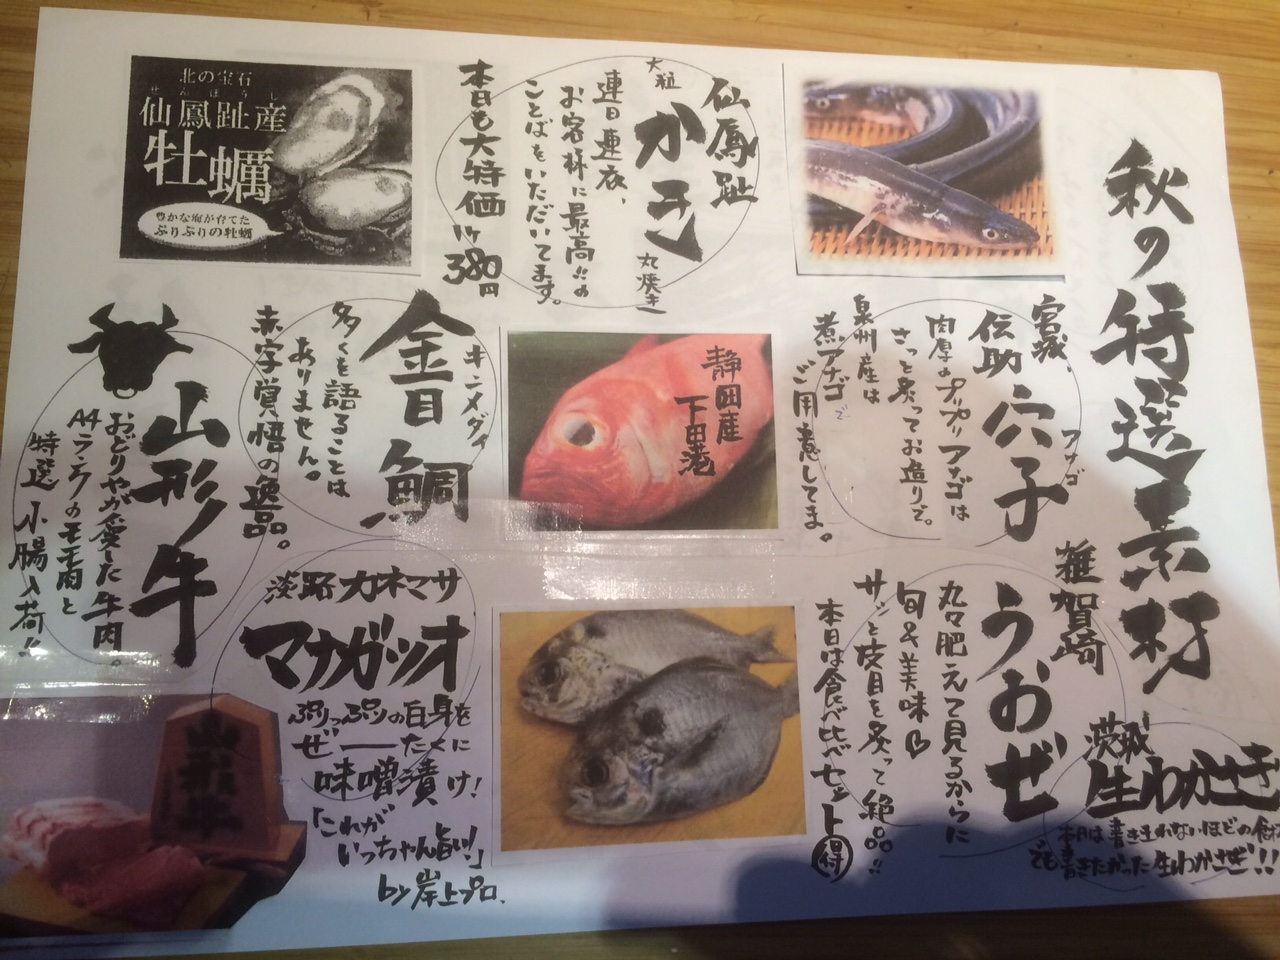 秋の特選素材
宮城、
伝助穴子
アナゴ
肉厚のプリプリアナゴは
さっと炙ってお造りで。
泉州産は
煮アナゴで
ご用意してます。
雑賀崎
うおぜ
丸々肥えて見るからに
旬&美味♡
サッと皮目を炙って絶品!!
本日は食べ比べセット得
茨城
生わかさぎ
本日は書ききれないほどの食材
でも書きたかった生わかさぎ!!
仙鳳趾
大粒かき丸焼き
連日連夜、
お客様に最高!!の
ことばをいただいてます。
本日も大特価1ケ380円
北の宝石
せんぽうし
仙鳳趾産
牡蠣
豊かな海が育てた
ぷりぷりの牡蠣
静岡産
下田港
キンメダイ
金目鯛
多くを語ることは
ありません。
赤字覚悟の逸品。
淡路カネマサ
マナガツオ
ぷりっぷりの白身を
ぜーたくに
味噌漬け!
「これが
いっちゃん旨い!」
by岸上プロ.
山形牛
おどりやが愛した牛肉。
A4ランクのモモ肉と
特選小腸入荷!!
山形牛